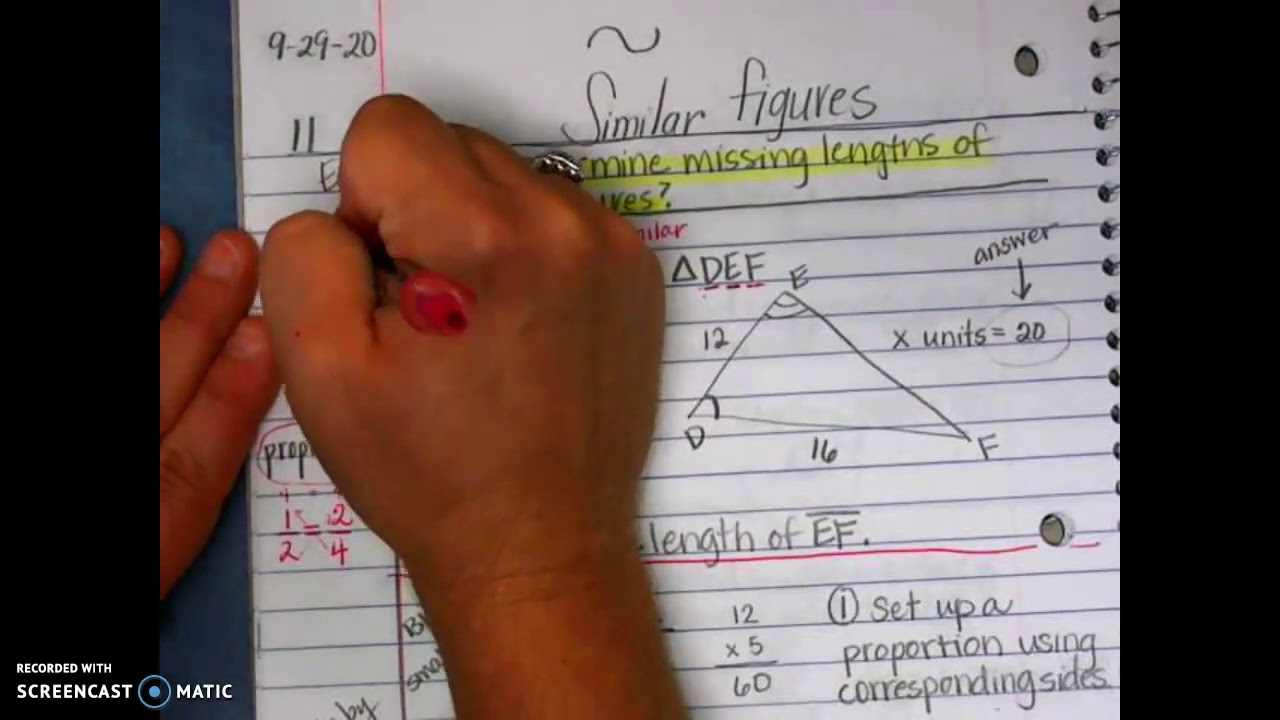 9-29-20
~
Similar figures
11
E
mine missing lengths of
ures?
milar
△DEF
E
answer
12
x units = 20
D
16
F
prop
1 = 2
2 4
length of EF.
12
x 5
60
① Set up a
proportion using
corresponding sides
sma
by
RECORDED WITH
SCREENCAST MATIC